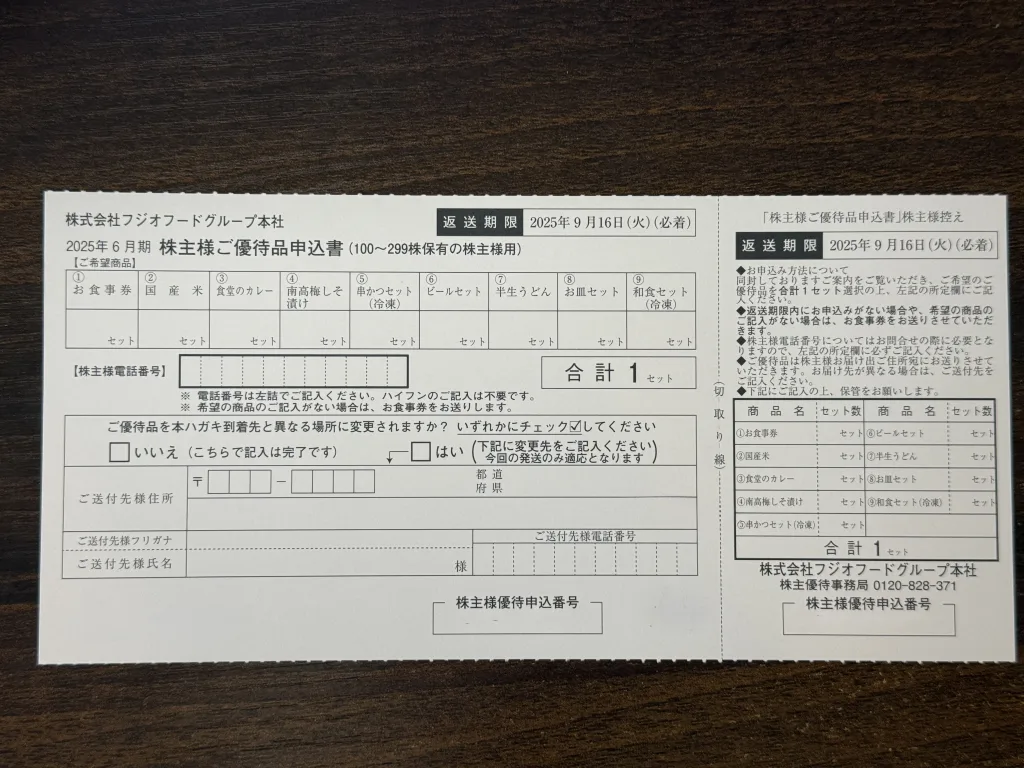 株式会社フジオフードグループ本社
返送期限 2025年9月16日(火)(必着)
2025年6月期 株主様ご優待品申込書(100～299株保有の株主様用)
【ご希望商品】
①お食事券 ②国産米 ③食堂のカレー ④南高梅しそ漬け ⑤串かつセット(冷凍) ⑥ビールセット ⑦半生うどん ⑧お皿セット ⑨和食セット(冷凍)
セット セット セット セット セット セット セット セット セット
【株主様電話番号】
合計 1 セット
※ 電話番号は左詰でご記入ください。ハイフンのご記入は不要です。
※ 希望の商品のご記入がない場合は、お食事券をお送りします。
ご優待品を本ハガキ到着先と異なる場所に変更されますか? いずれかにチェック☑してください
□いいえ(こちらで記入は完了です)
□はい(下記に変更先をご記入ください 今回の発送のみ適応となります)
ご送付先様住所
〒 －
都道
府県
ご送付先様フリガナ
ご送付先様電話番号
ご送付先様氏名
様
株主様優待申込番号
(切取り線)
「株主様ご優待品申込書」株主様控え
返送期限 2025年9月16日(火)(必着)
◆お申込み方法について
同封しておりますご案内をご覧いただき、ご希望のご
優待品を合計1セット選択の上、左記の所定欄にご記
入ください。
◆返送期限内にお申込みがない場合や、希望の商品の
ご記入がない場合は、お食事券をお送りさせていただ
きます。
◆株主様電話番号についてはお問合せの際に必要とな
りますので、左記の所定欄に必ずご記入ください。
◆ご優待品は株主様お届出ご住所宛にお送りさせて
いただきます。お届け先が異なる場合は、ご送付先を
ご記入ください。
◆下記にご記入の上、保管をお願いします。
商品名 セット数 商品名 セット数
①お食事券 セット ⑥ビールセット セット
②国産米 セット ⑦半生うどん セット
③食堂のカレー セット ⑧お皿セット セット
④南高梅しそ漬け セット ⑨和食セット(冷凍) セット
⑤串かつセット(冷凍) セット
合計 1 セット
株式会社フジオフードグループ本社
株主優待事務局 0120-828-371
株主様優待申込番号